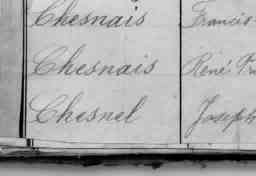 Chesnais Francis
Chesnais René Fr
Chesnel Joseph